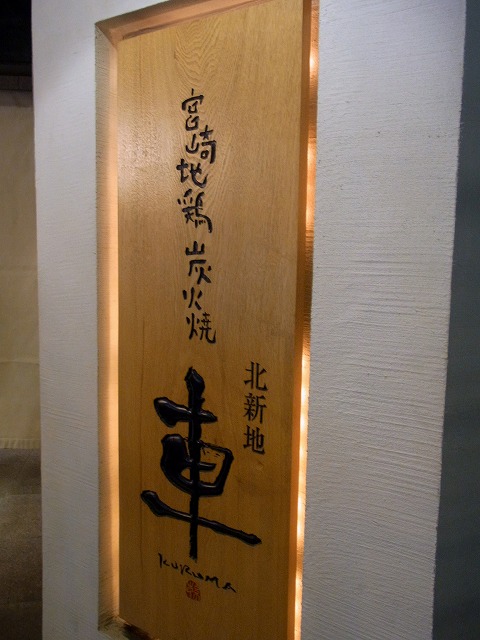 宮崎地鶏炭火焼
北新地
車
KURUMA